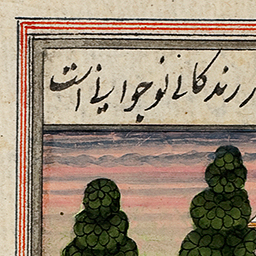 ر زندکانی نوجوانی است